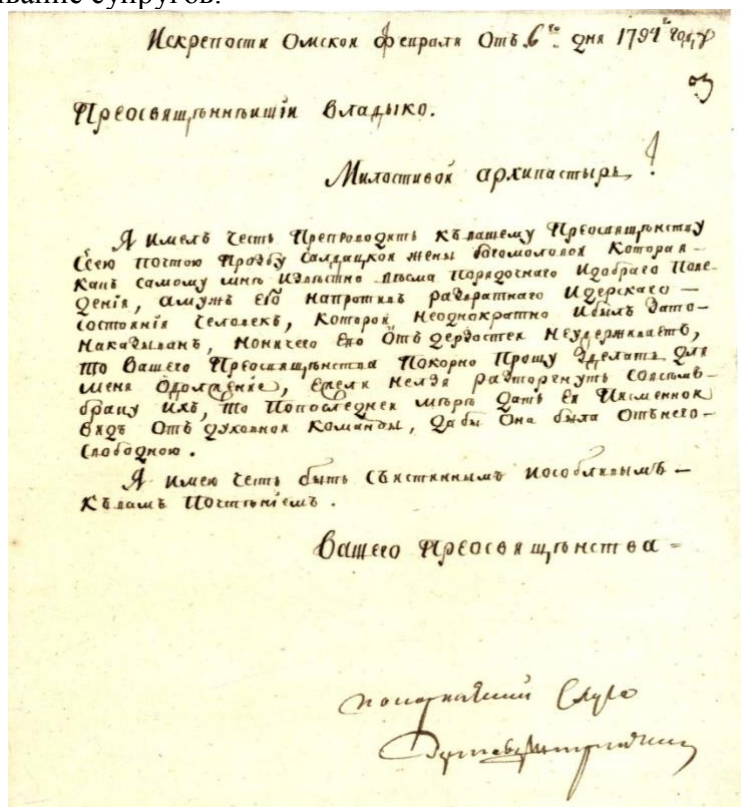 вание супругов.
Искрепости Омской февраля Отъ 6го дня 1791го году
Преосвященнѣишіи Владыко.
Милостивой архипастырь!
Я имелъ честь Препроводить къвашему Преосвященству
Сею почтою Прозбу Салдацкой жены богомоловой Которая
какъ самому мнѣ Извѣстно весма порядочнаго Идобраго Пове-
денія, амужъ Ево напротивъ развратнаго Идерскаго
состоянія человекъ, Которой неоднократно Ибылъ зато
наказыванъ, ноничего Ево Отъ дерзостей Неудерживаетъ,
то Вашего Преосвященства Покорно Прошу зделать для
меня Одолжение, Ежели нелзя расторгнуть Совсемъ
браку Ихъ, то Попоследней мѣрѣ дать Ей Писменной
видъ Отъ духовной команды, дабы Она была Отънего
Свободною.
Я имею честь быть Съистиннымъ Иособливымъ
Къвамъ Почтѣніемъ.
Вашего Преосвященства
слуга